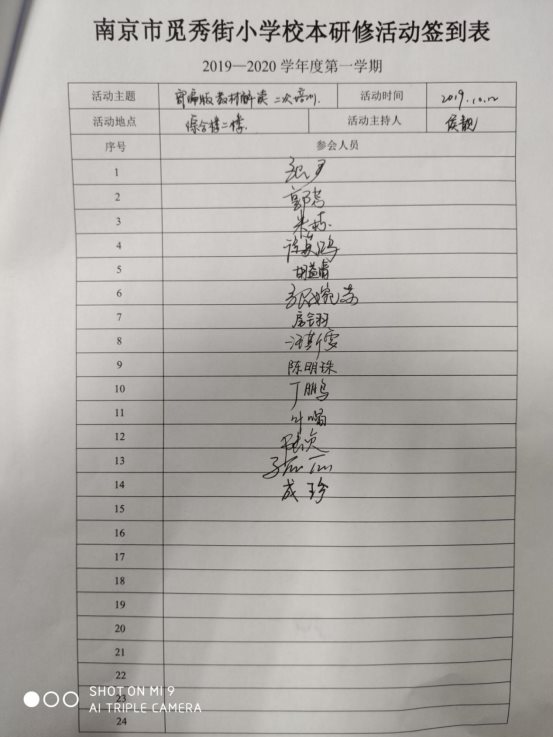 南京市觅秀街小学校本研修活动签到表
2019—2020 学年度第一学期
活动主题 部编版教材解读 二次培训. 活动时间 2019.10.12
活动地点 综合楼二楼. 活动主持人
序号 参会人员
1
2
3
4
5 胡益睿
6
7
8 汪斯雯
9 陈明珠
10 丁鹏鸟
11 叶鸣
12
13
14 成珍
15
16
17
18
19
20
21
22
23
24
SHOT ON MI 9
AI TRIPLE CAMERA